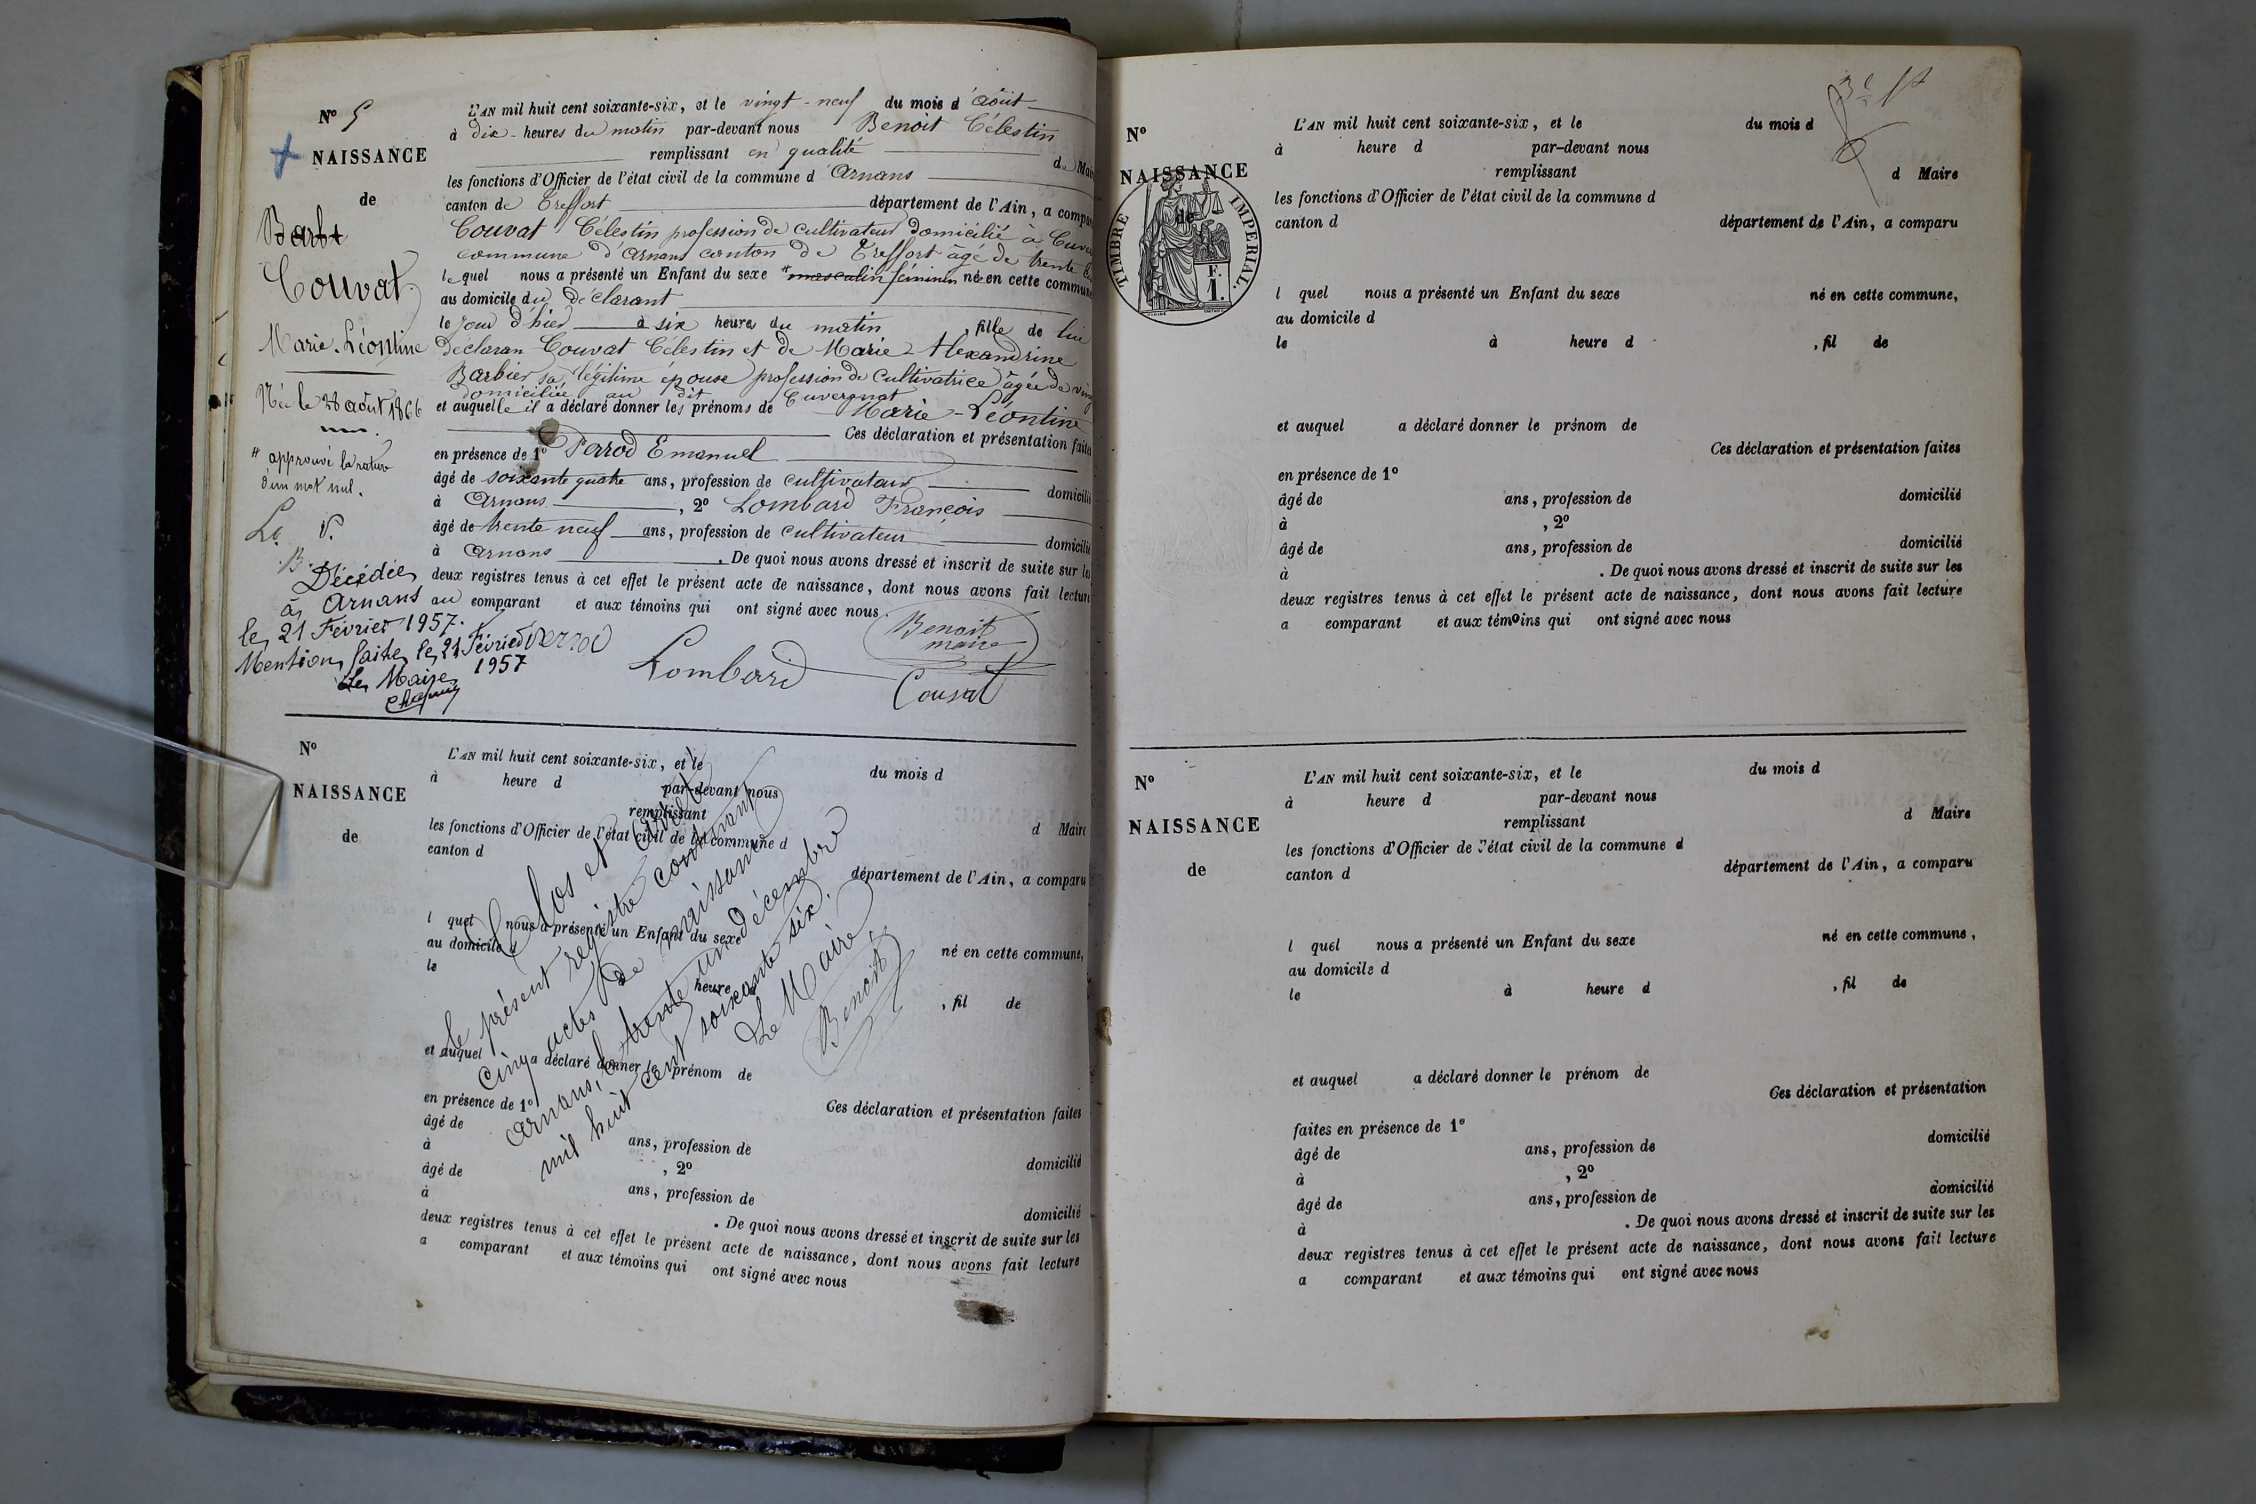 N° 5
NAISSANCE
de
Barbt
Couvat
Marie-Léontine
Née le 28 août 1866
# approuvé la rature
d'un mot nul.
Décédée
à Arnans
le 21 Février 1957.
Mention faite le 21 Février
1957
Le Maire
L'AN mil huit cent soixante-six, et le vingt-neuf du mois d'Août
à dix heures du matin par-devant nous Benoit Célestin
remplissant en qualité d Mai
les fonctions d'Officier de l'état civil de la commune d'Arnans
canton de Treffort département de l'Ain, a compa
Couvat Célestin profession de cultivateur domicilié à
commune d'Arnans canton de Treffort âgé de trente
lequel nous a présenté un Enfant du sexe # masculin féminin née en cette commune
au domicile du déclarant
le jour d'hier à six heures du matin, fille de lui
déclaran Couvat Célestin et de Marie-Alexandrine
Barbier sa légitime épouse profession de cultivatrice âgée de
domiciliée au dit Cuvergnat
et auquelle il a déclaré donner les prénoms de Marie-Léontine
Ces déclaration et présentation faites
en présence de 1° Perrod Emanuel
âgé de soixante quatre ans, profession de cultivateur domicilié
à Arnans, 2° Lombard François
âgé de trente neuf ans, profession de cultivateur domicilié
à Arnans. De quoi nous avons dressé et inscrit de suite sur les
deux registres tenus à cet effet le présent acte de naissance, dont nous avons fait lecture
au comparant et aux témoins qui ont signé avec nous.
Benoit
maire
Lombard
Couvat
N°
NAISSANCE
de
L'AN mil huit cent soixante-six, et le du mois d
à heure d par-devant nous
remplissant d Maire
les fonctions d'Officier de l'état civil de la commune d
canton d département de l'Ain, a comparu
l quel nous a présenté un Enfant du sexe né en cette commune,
au domicile d
le heure , fil de
et auquel a déclaré donner le prénom de
Ces déclaration et présentation faites
en présence de 1°
âgé de ans, profession de domicilié
à , 2°
âgé de ans, profession de domicilié
à . De quoi nous avons dressé et inscrit de suite sur les
deux registres tenus à cet effet le présent acte de naissance, dont nous avons fait lecture
a comparant et aux témoins qui ont signé avec nous
Clos et arrêté
le présent registre contenant
cinq actes de naissance
Arnans, le trente un décembre
mil huit cent soixante six.
Le Maire
Benoit
N°
NAISSANCE
de
TIMBRE IMPERIAL.
F.
1.
L'AN mil huit cent soixante-six, et le du mois d
à heure d par-devant nous
remplissant d Maire
les fonctions d'Officier de l'état civil de la commune d
canton d département de l'Ain, a comparu
l quel nous a présenté un Enfant du sexe né en cette commune,
au domicile d
le à heure d , fil de
et auquel a déclaré donner le prénom de
Ces déclaration et présentation faites
en présence de 1°
âgé de ans, profession de domicilié
à , 2°
âgé de ans, profession de domicilié
à . De quoi nous avons dressé et inscrit de suite sur les
deux registres tenus à cet effet le présent acte de naissance, dont nous avons fait lecture
a comparant et aux témoins qui ont signé avec nous
N°
NAISSANCE
de
L'AN mil huit cent soixante-six, et le du mois d
à heure d par-devant nous
remplissant d Maire
les fonctions d'Officier de l'état civil de la commune d
canton d département de l'Ain, a comparu
l quel nous a présenté un Enfant du sexe né en cette commune,
au domicile d
le à heure d , fil de
et auquel a déclaré donner le prénom de
Ces déclaration et présentation
faites en présence de 1°
âgé de ans, profession de domicilié
à , 2°
âgé de ans, profession de domicilié
à . De quoi nous avons dressé et inscrit de suite sur les
deux registres tenus à cet effet le présent acte de naissance, dont nous avons fait lecture
a comparant et aux témoins qui ont signé avec nous